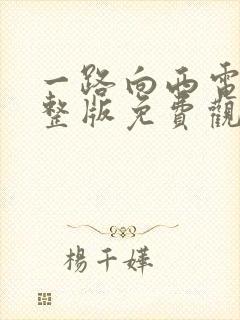 一路向西電
整版免費觀
楊千嬅